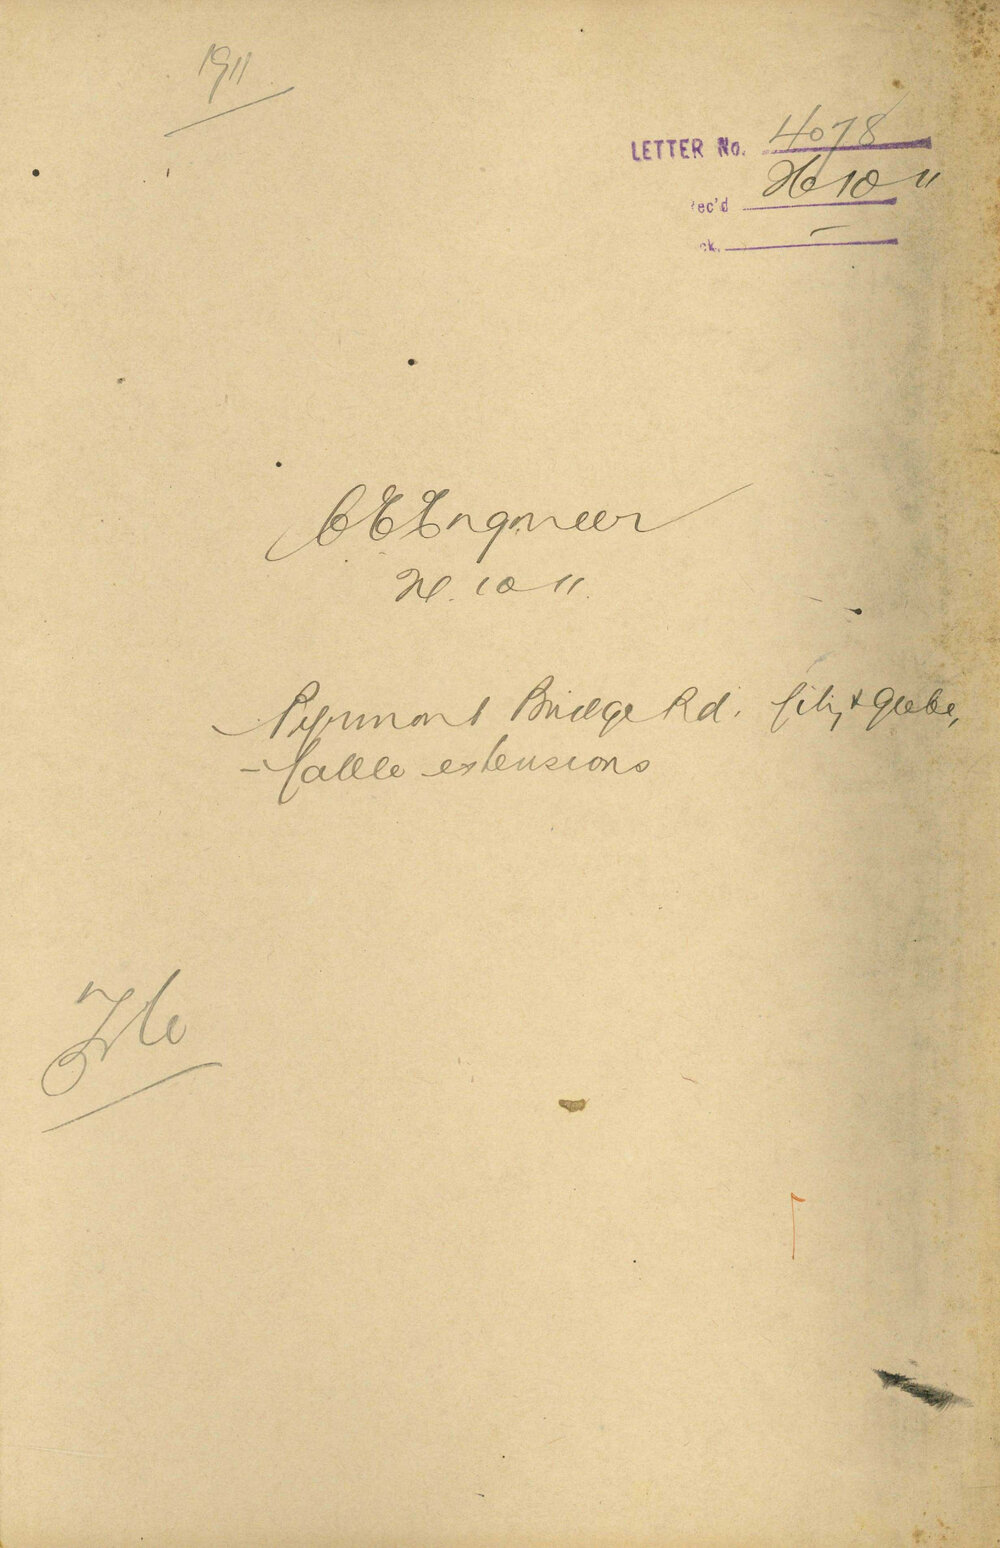 1911
LETTER No. 4078
Rec'd 26 10 11
ck. —
C E Engineer
26. 10 11.
Pyrmont Bridge Rd. City & Glebe,
- Cable extensions